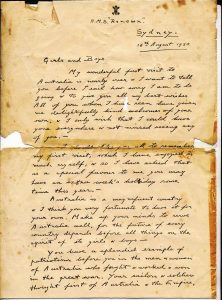 H.M.S. "Renown".
Sydney.
18th August 1920
Girls and Boys
My wonderful first visit to
Australia is nearly over & I want to tell
you before I sail how sorry I am to be
going & to give you all my best wishes.
All of you whom I have seen have given
me delightfully kind welcomes of your
own, & I only wish that I could have
gone everywhere & not missed seeing any
of you.
I should like you all to remember
my first visit, which I have enjoyed so
much myself, & so I have asked that
as a special favour to me you may
have an extra week's holiday some
time this year.
Australia is a magnificent country
& I think you very fortunate to have it for
your own. Make up your minds to serve
Australia well, for the future of every
country depends before all things on the
spirit of its girls & boys.
You have a splendid example of
patriotism before you in the men & women
of Australia who fought & worked & won
in the great war. Your sailors & soldiers
thought first of Australia & the Empire,